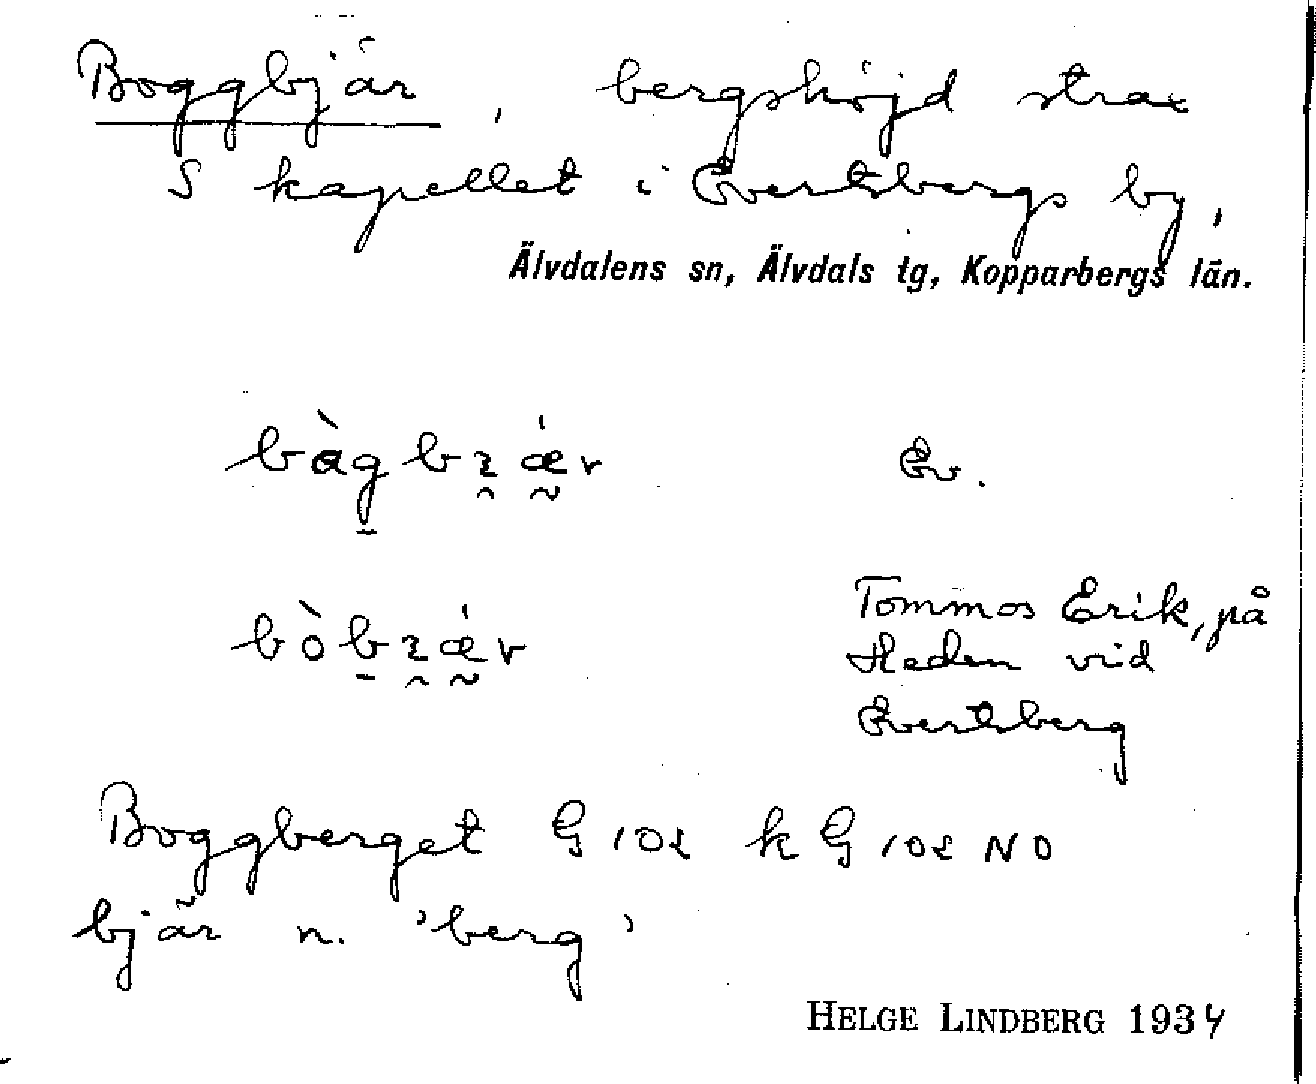 Boggbjär, bergshöjd strax
S kapellet i Evertsbergs by,
Älvdalens sn, Älvdals tg, Kopparbergs län.
Ev.
Tommos Erik, på
Heden vid
Evertsberg
Boggberget G 102 k G 102 NO
bjär n. 'berg'
HELGE LINDBERG 1934